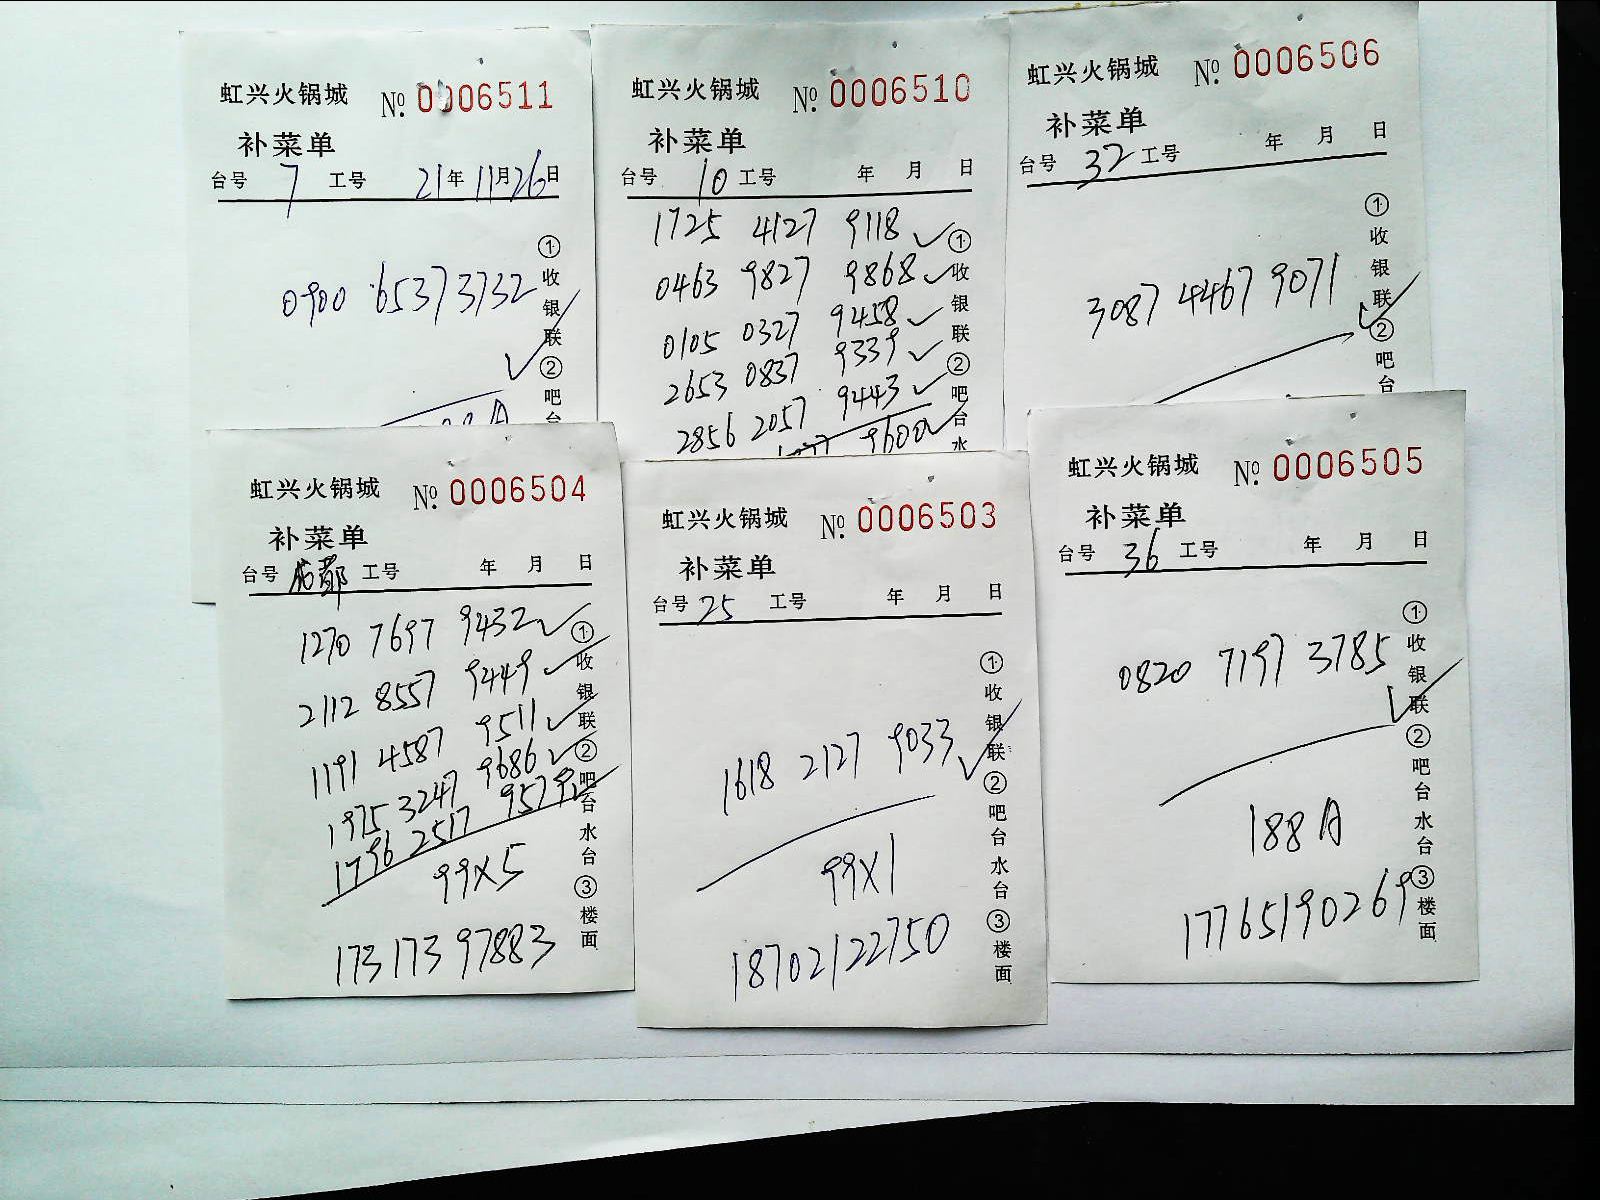 虹兴火锅城 № 0006511
补菜单
台号 7 工号 21年11月26日
0900 6537 3732
①收银联②吧台
虹兴火锅城 № 0006510
补菜单
台号 10 工号 年 月 日
1725 4127 9118 ✓
0463 9827 9868 ✓
0105 0327 9458 ✓
2653 0837 9339 ✓
2856 2057 9443 ✓
9600 ✓
①收银联②吧台水
虹兴火锅城 № 0006506
补菜单
台号 32 工号 年 月 日
3087 4467 9071
①收银联②吧台
虹兴火锅城 № 0006504
补菜单
台号 成都 工号 年 月 日
1270 7697 9432 ✓
2112 8557 9449 ✓
1191 4587 9511 ✓
1975 3247 9686 ✓
1796 2517 9579
99X5
173 173 97883
①收银联②吧台水台③楼面
虹兴火锅城 № 0006503
补菜单
台号 25 工号 年 月 日
1618 2127 9033 ✓
99X1
18702122750
①收银联②吧台水台③楼面
虹兴火锅城 № 0006505
补菜单
台号 36 工号 年 月 日
0820 7197 3785 ✓
188A
17765190269
①收银联②吧台水台③楼面